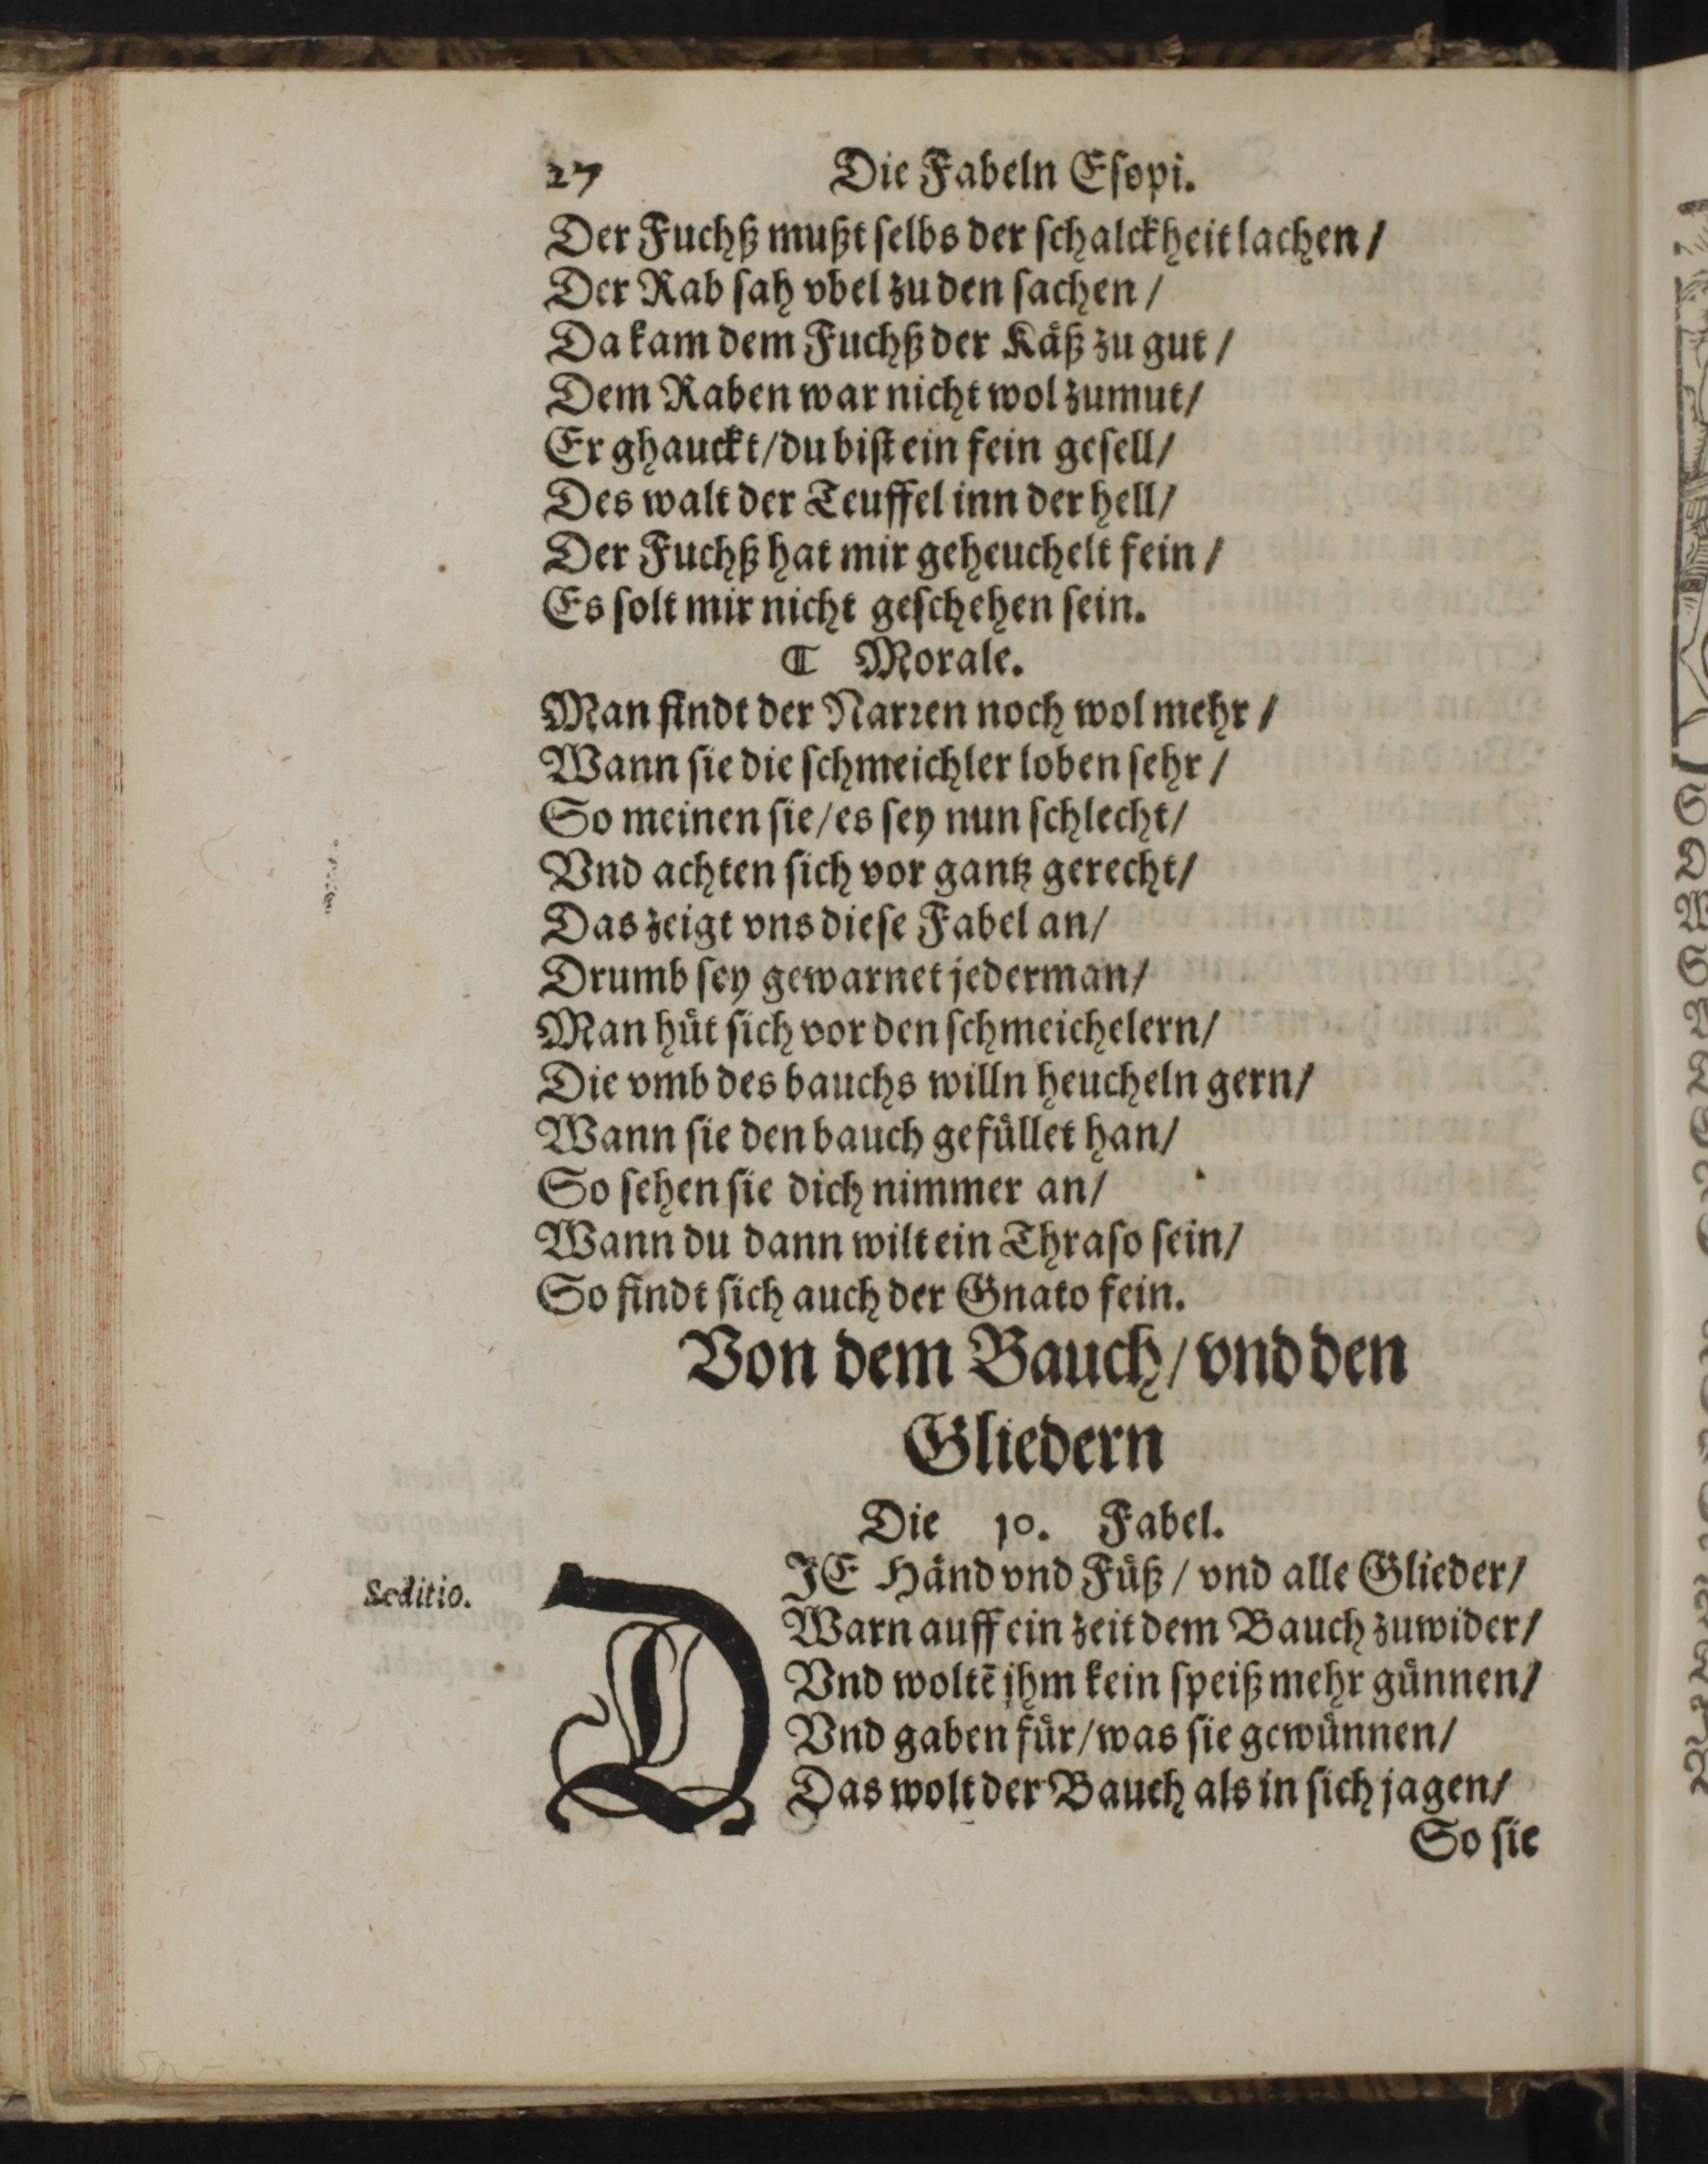 27 Die Fabeln Eſopi.
Der Fuchß mußt ſelbs der ſchalckheit lachen /
Der Rab ſah vbel zu den ſachen /
Da kam dem Fuchß der Käß zu gut /
Dem Raben war nicht wol zumut/
Er ghauckt/du biſt ein fein geſell/
Des walt der Teuffel inn der hell/
Der Fuchß hat mir geheuchelt fein /
Es ſolt mir nicht geſchehen ſein.
⸿ Morale.
Man findt der Narꝛen noch wol mehr /
Wann ſie die ſchmeichler loben ſehr /
So meinen ſie/es ſey nun ſchlecht/
Vnd achten ſich vor gantz gerecht/
Das zeigt vns dieſe Fabel an/
Drumb ſey gewarnet jederman/
Man hüt ſich vor den ſchmeichelern/
Die vmb des bauchs willn heucheln gern/
Wann ſie den bauch gefüllet han/
So ſehen ſie dich nimmer an/
Wann du dann wilt ein Thraſo ſein/
So findt ſich auch der Gnato fein.
Von dem Bauch/vnd den
Gliedern
Die 10. Fabel.
Seditio.
DJE Händ vnd Füß / vnd alle Glieder/
Warn auff ein zeit dem Bauch zuwider/
Vnd woltẽ jhm kein ſpeiß mehr günnen/
Vnd gaben für/was ſie gewünnen/
Das wolt der Bauch als in ſich jagen/
So ſie